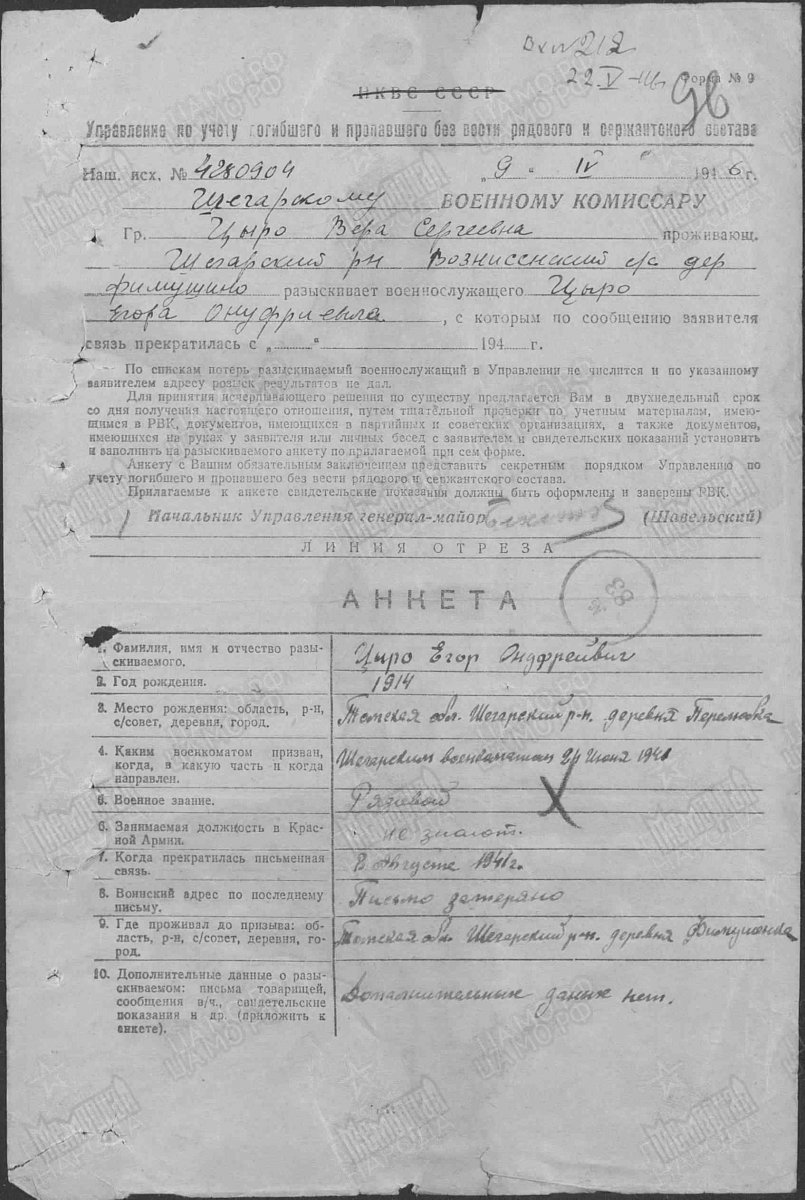 Вх № 212
22.V-46
Форма № 9
96
НКВС СССР
Управление по учету погибшего и пропавшего без вести рядового и сержантского состава
Наш. исх. № 4280904 „9“ IV 1946 г.
Шегарскому ВОЕННОМУ КОМИССАРУ
Гр. Цыро Вера Сергеевна проживающ.
Шегарский рн Вознисенский с/с дер
Фимушино разыскивает военнослужащего Цыро
Егора Онуфриевича, с которым по сообщению заявителя
связь прекратилась с „ “ 194 г.
По спискам потерь разыскиваемый военнослужащий в Управлении не числится и по указанному
заявителем адресу розыск результатов не дал.
Для принятия исчерпывающего решения по существу предлагается Вам в двухнедельный срок
со дня получения настоящего отношения, путем тщательной проверки по учетным материалам, имею-
щимся в РВК, документов, имеющихся в партийных и советских организациях, а также документов,
имеющихся на руках у заявителя или личных бесед с заявителем и свидетельских показаний установить
и заполнить на разыскиваемого анкету по прилагаемой при сем форме.
Анкету с Вашим обязательным заключением представить секретным порядком Управлению по
учету погибшего и пропавшего без вести рядового и сержантского состава.
Прилагаемые к анкете свидетельские показания должны быть оформлены и заверены РВК.
Начальник Управления генерал-майор (Шавельский)
ЛИНИЯ ОТРЕЗА
АНКЕТА
83
1. Фамилия, имя и отчество разы-
скиваемого.
Цыро Егор Онуфрейвич
2. Год рождения.
1914
3. Место рождения: область, р-н,
с/совет, деревня, город.
Томская обл. Шегарский р-н. деревня Перелювка
4. Каким военкоматом призван,
когда, в какую часть и когда
направлен.
Шегарским военкоматом 24 июня 1941
5. Военное звание.
Рядовой
6. Занимаемая должность в Крас-
ной Армии.
не знают.
7. Когда прекратилась письменная
связь.
В Августе 1941г.
8. Воинский адрес по последнему
письму.
Письмо затеряно
9. Где проживал до призыва: об-
ласть, р-н, с/совет, деревня, го-
род.
Томская обл. Шегарский р-н. деревня Фимушонка
10. Дополнительные данные о разы-
скиваемом: письма товарищей,
сообщения в/ч., свидетельские
показания и др. (приложить к
анкете).
Дополнительных даних нет.